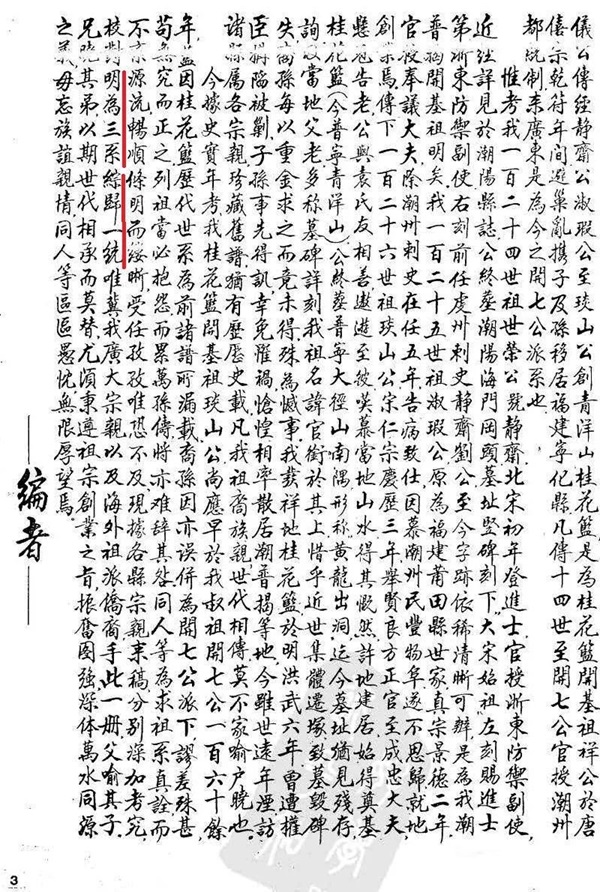 儀公傳經靜齋公淑瑕公至琰山公創青洋山桂花籃是為桂花籃開基祖祥公於唐
僖宗乾符年間避巢亂携子及孫移居福建寧化縣凡傳十四世至開七公官授潮州
都統制來廣東是為今之開七公派系也
惟考我一百二十四世祖世榮公號靜齋北宋初年登進士官授浙東防禦副使
近經詳見於潮陽縣誌公終塟潮陽海門岡頭墓址竪碑刻下大宋始祖左刻賜進士
第浙東防禦副使右刻前任虔州刺史靜齋劉公至今字跡依稀清晰可辨是為我潮
普揭開基祖明矣我一百二十五世祖淑瑕公原為福建莆田縣世家真宗景德二年
官授奉議大夫除潮州刺史在任五年告病致仕因慕潮州民豐物阜遂不思歸就地
創業焉傳下一百二十六世祖琰山公宋仁宗慶歷三年舉賢良方正官至成忠大夫
懸患告老公與袁氏友相善遨遊至彼嘆慕當地山水得其慨然許地建居始得奠基
桂花籃(今普寧青洋山)公終葬普寧大徑山南隅形称黃龍出洞迄今墓址猶見殘存
詢故當地父老多称墓碑詳刻我祖名諱官銜於其上惜乎近世集體遷塚致墓毀碑
失裔孫每以重金求之而竟未得殊為憾事我發祥地桂花籃於明洪武六年曾遭權
臣構陥被剿子孫事先得訊幸免罹禍愴惶相率散居潮普揭等地今雖世遠年湮訪
諸縣属各宗親珍藏舊譜猶有歷歷史載凡我祖裔族親世代相傳莫不家喻户曉也
今據史實年考我桂花籃開基祖琰山公尚應早於我叔祖開七公一百六十餘
年茲因桂花籃歷代世系為前諸譜所漏載裔孫因亦误併為開七公派下謬差殊甚
苟無究而正之列祖當必抱怨而累萬孫傳將亦难辞其咎同人等為求祖系真詮而
不紊源流暢順條明而綏晰受任孜孜唯恐不及現據各縣宗親秉稿分别深加考究
校對明為三系綜歸一統唯冀我廣大宗親以及海外祖派僑裔手此一册父喻其子
兄曉其弟以期世代相承而莫替尤須秉遵祖宗創業之旨振奮图強深体萬水同源
之義毋忘族誼親情同人等區區愚忱無限厚望焉
編者
3